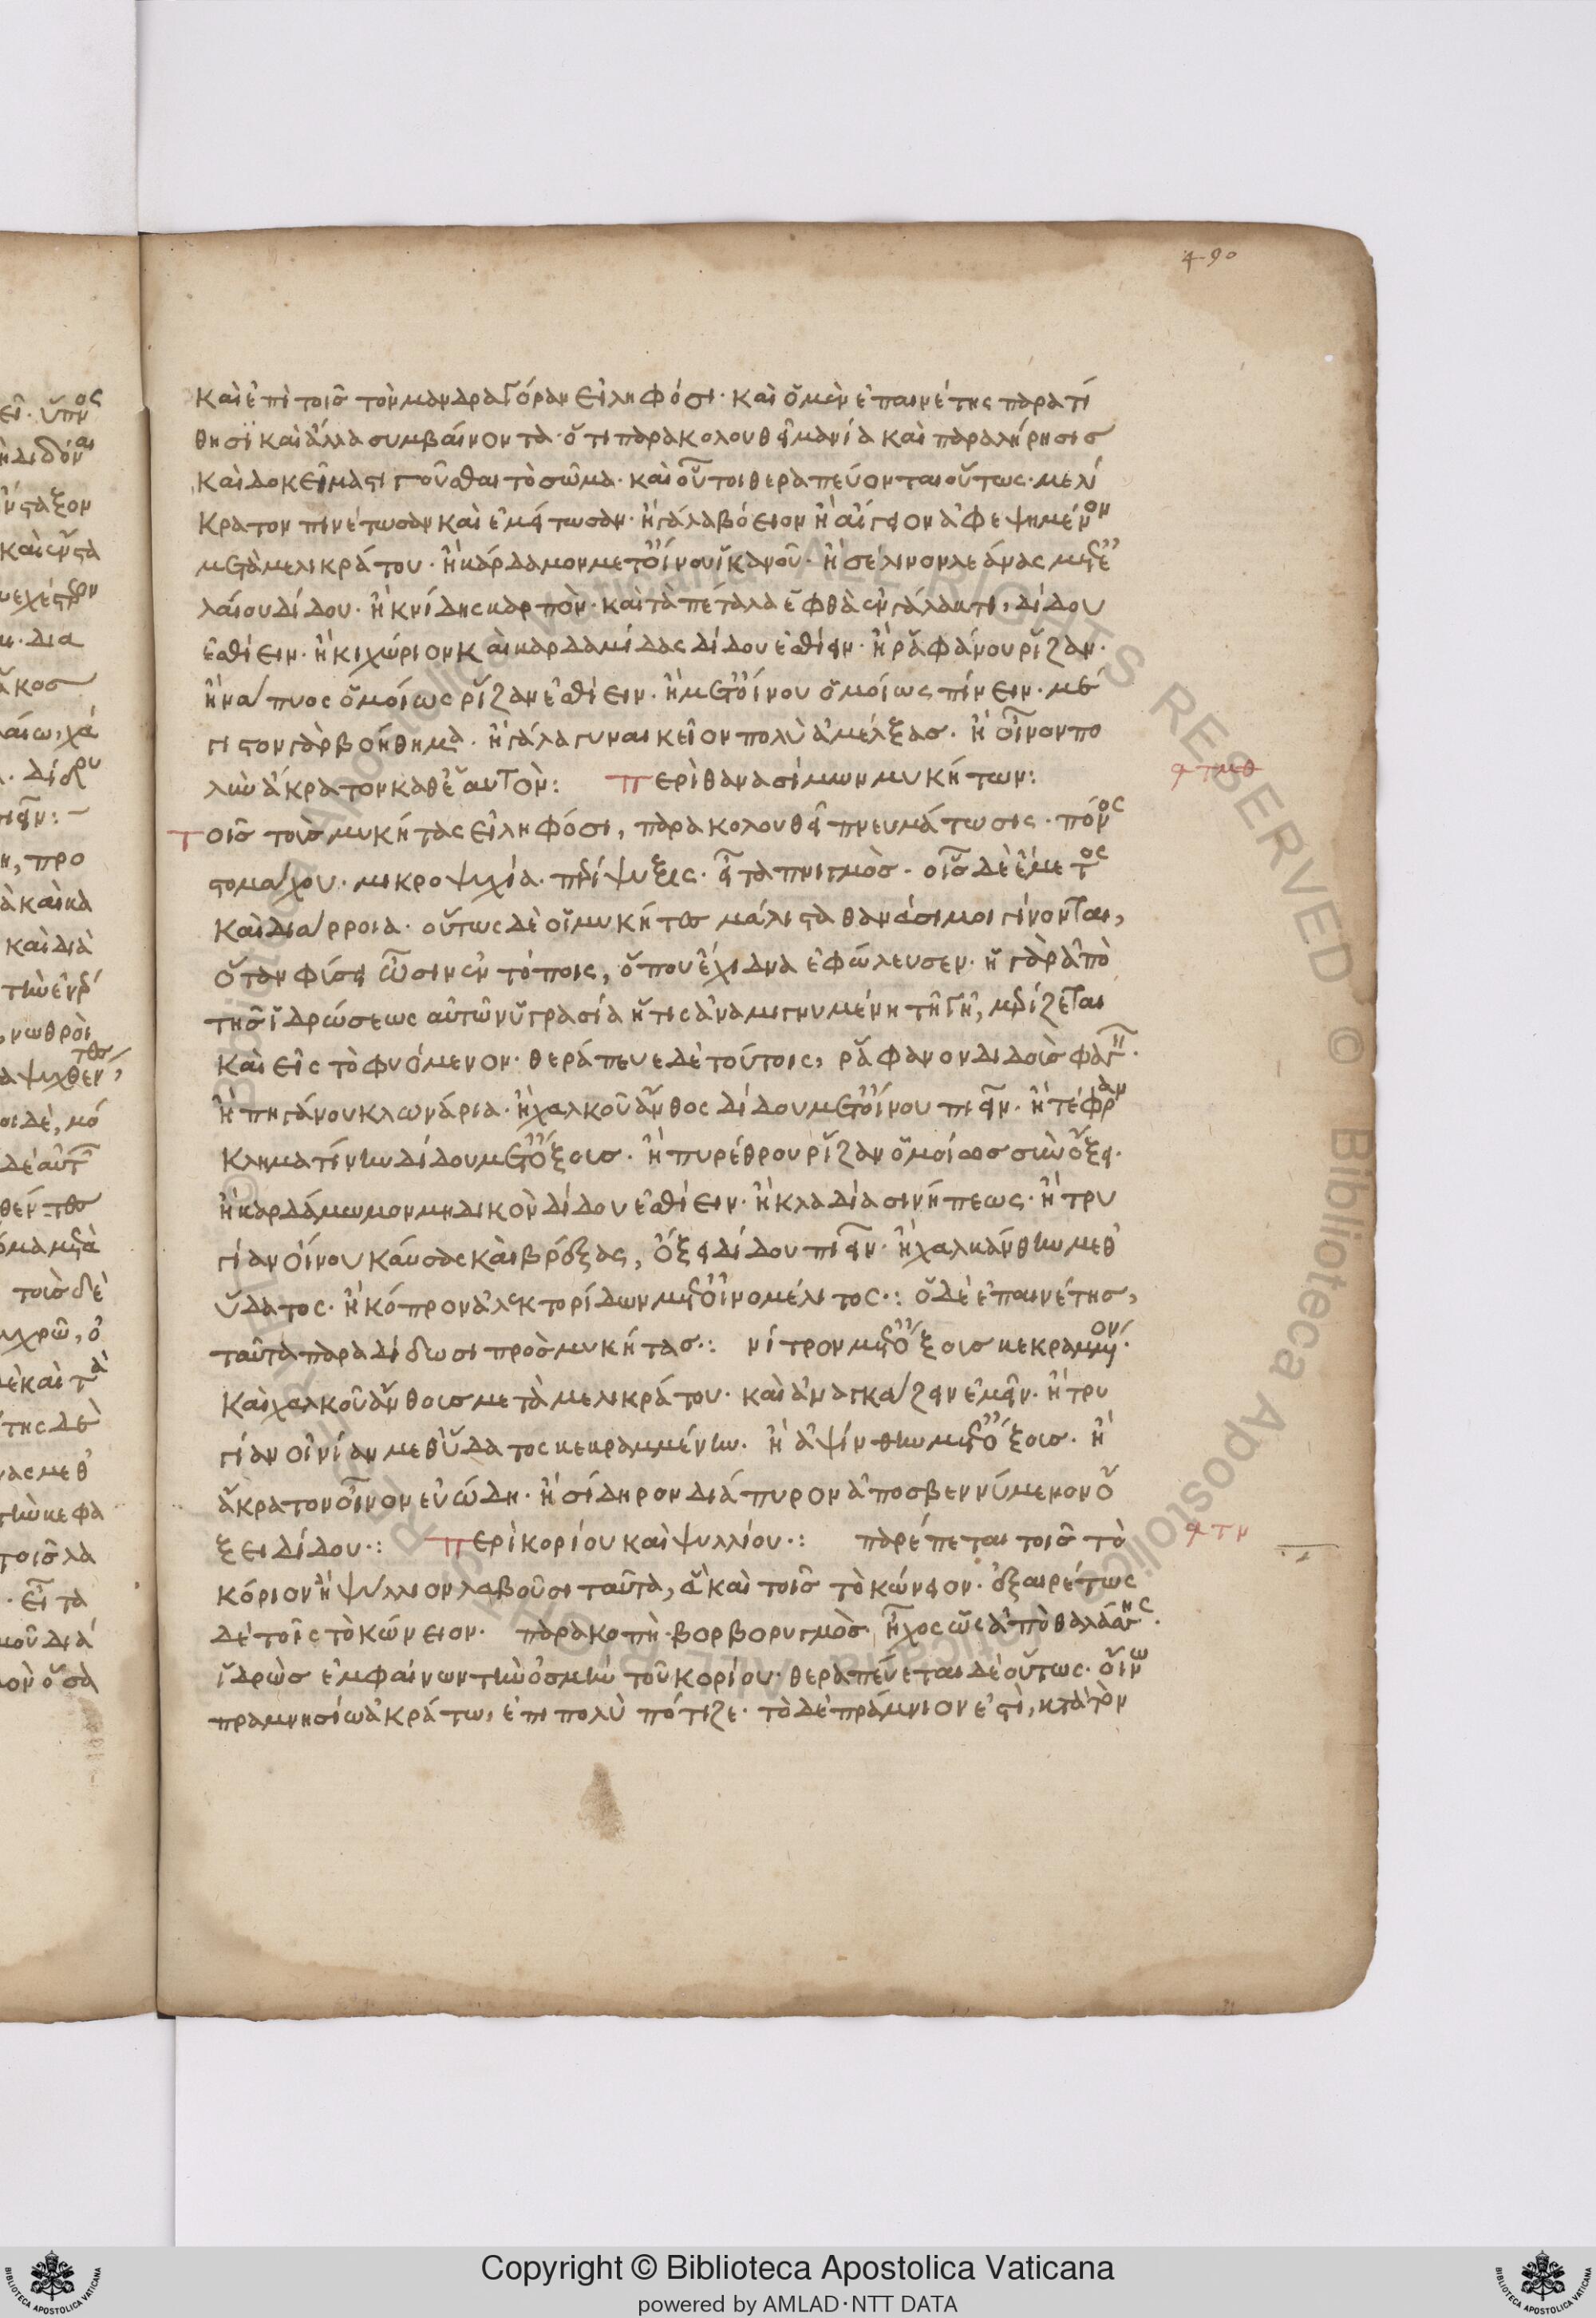 490
καὶ ἐπὶ τοῖς τὸν μανδραγόραν εἰληφόσι· καὶ ὁ μὲν ἐπαινέτης παρατί
θησϊ καὶ ἄλλα συμβαίνοντα· ὅτι παρακολουθεῖ μανία καὶ παραλήρησις
καὶ δοκεῖ μαστιγοῦσθαι τὸ σῶμα· καὶ οὗτοι θεραπεύονται οὕτως· μελί
κρατον πινέτωσαν καὶ ἐμείτωσαν· ἢ γάλα βόειον ἢ αἴγειον ἀφεψημένον
μετὰ μελικράτου· ἢ κάρδαμον μετ' οἴνου ἱκανοῦ· ἢ σέλινον λεάνας μετ' ἐ
λαίου δίδου· ἢ κνίδης καρπὸν· καὶ τὰ πέταλα ἑφθὰ ἐν γάλακτι, δίδου
ἐσθίειν· ἢ κιχώριον καὶ καρδαμίδας δίδου ἐσθίειν· ἢ ῥαφάνου ῥίζαν·
ἢ νάπυος ὁμοίως ῥίζαν ἐσθίειν· ἢ μετ' οἴνου ὁμοίως πίνειν· μέ
γιστον γὰρ βοήθημα· ἢ γάλα γυναικεῖον πολὺ ἀμέλξας· ἢ οἶνον πο
λὺν ἄκρατον καθ' ἑαυτὸν: Περὶ θανασίμων μυκήτων:
τμθ
Τοῖς τοὺς μυκήτας εἰληφόσι, παρακολουθεῖ πνευμάτωσις· πόνος
στομάχου· μικροψυχία· περίψυξις· εἶτα πνιγμὸς· οἷς δὲ ἔμετος
καὶ διάρροια· οὕτως δὲ οἱ μύκητες μάλιστα θανάσιμοι γίνονται,
ὅταν φύσει ὦσιν ἐν τόποις, ὅπου ἔχιδνα ἐφώλευσεν· ἡ γὰρ ἀπὸ
τῆς ἱδρώσεως αὐτῶν ὑγρασία ἥτις ἀναμιγνυμένη τῇ γῇ, μερίζεται
καὶ εἰς τὸ φυόμενον· θεράπευε δὲ τούτοις, ῥάφανον διδοὺς φαγεῖν·
ἢ πηγάνου κλωνάρια· ἢ χαλκοῦ ἄνθος δίδου μετ' οἴνου πιεῖν· ἢ τέφραν
κληματίνην δίδου μετ' ὄξους· ἢ πυρέθρου ῥίζαν ὁμοίως σὺν ὄξει·
ἢ καρδάμωμον μηδικὸν δίδου ἐσθίειν· ἢ κλαδία σινήπεως· ἢ τρυ
γίαν οἴνου καύσας καὶ βρέξας, ὄξει δίδου πιεῖν· ἢ χαλκάνθην μεθ'
ὕδατος· ἢ κόπρον ἀλεκτορίδων μετ' οἰνομέλιτος·: ὁ δὲ ἐπαινέτης,
ταῦτα παραδίδωσι πρὸς μυκήτας·: νίτρον μετ' ὄξους κεκραμμένον·
καὶ χαλκοῦ ἄνθους μετὰ μελικράτου· καὶ ἀναγκάζειν ἐμεῖν· ἢ τρυ
γίαν οἰνίαν μεθ' ὕδατος κεκραμμένην· ἢ ἀψίνθην μετ' ὄξους· ἢ
ἄκρατον οἶνον εὐώδη· ἢ σίδηρον διάπυρον ἀποσβεννύμενον ὄ
ξει δίδου·: Περὶ κορίου καὶ ψυλλίου·: παρέπεται τοῖς τὸ
τν
κόριον ἢ ψύλλιον λαβοῦσι ταῦτα, ἃ καὶ τοῖς τὸ κώνειον· ἐξαιρέτως
δὲ τοῖς τὸ κώνειον· παρακοπὴ· βορβορυγμὸς· ἦχος ὡς ἀπὸ θαλάσσης·
ἱδρὼς ἐμφαίνων τὴν ὀσμὴν τοῦ κορίου· θεραπεύεται δὲ οὕτως· οἴνω
πραμνησίω ἀκράτω, ἐπι πολὺ πότιζε· τὸ δὲ πράμνιον ἐστὶ, κατὰ τὸν
Copyright © Biblioteca Apostolica Vaticana
powered by AMLAD·NTT DATA